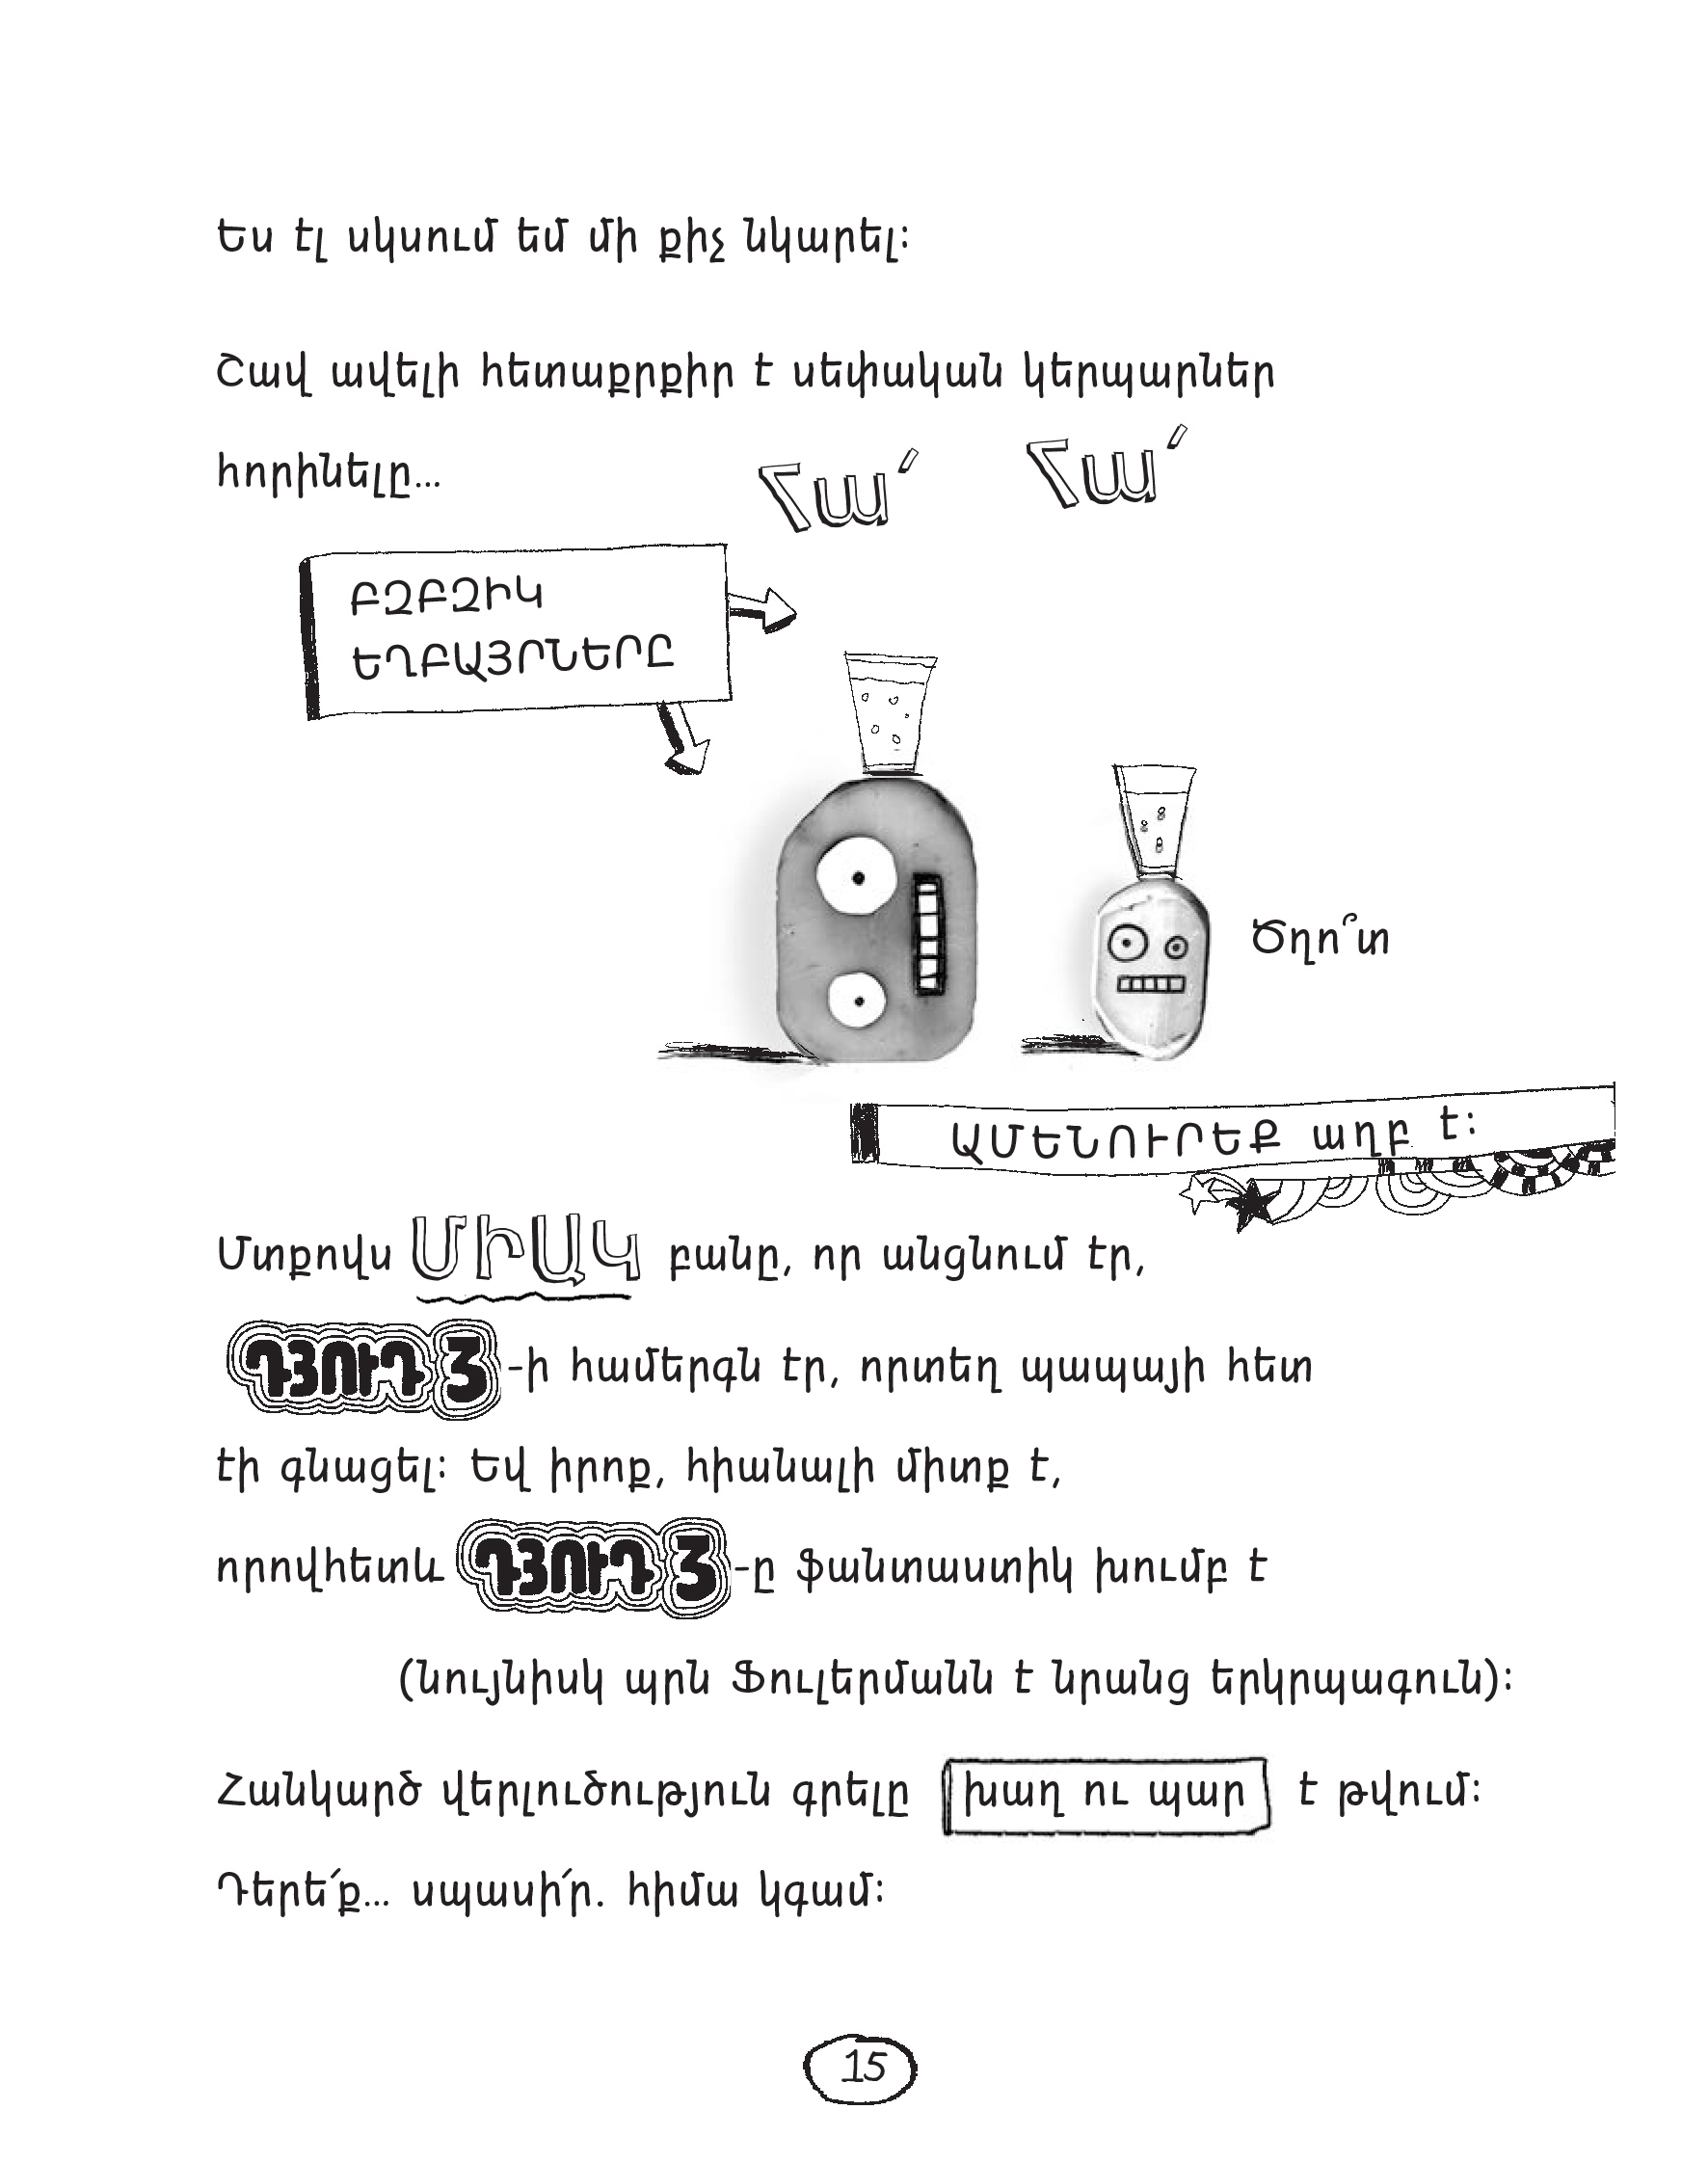 Ես էլ սկսում եմ մի քիչ նկարել։
Շավ ավելի հետաքրքիր է սեփական կերպարներ
հորինելը...
Հա՛ Հա՛
ԲԶԲԶԻԿ
ԵՂԲԱՅՐՆԵՐԸ
Ծղո՞տ
ԱՄԵՆՈՒՐԵՔ աղբ է։
Մտքովս ՄԻԱԿ բանը, որ անցնում էր,
ԴՅՈՒԴ 3-ի համերգն էր, որտեղ պապայի հետ
էի գնացել։ Եվ իրոք, հիանալի միտք է,
որովհետև ԴՅՈՒԴ 3-ը ֆանտաստիկ խումբ է
(նույնիսկ պրն Ֆուլերմանն է նրանց երկրպագուն)։
Հանկարծ վերլուծություն գրելը խաղ ու պար է թվում։
Դերե՛ք... սպասի՛ր. հիմա կգամ։
15